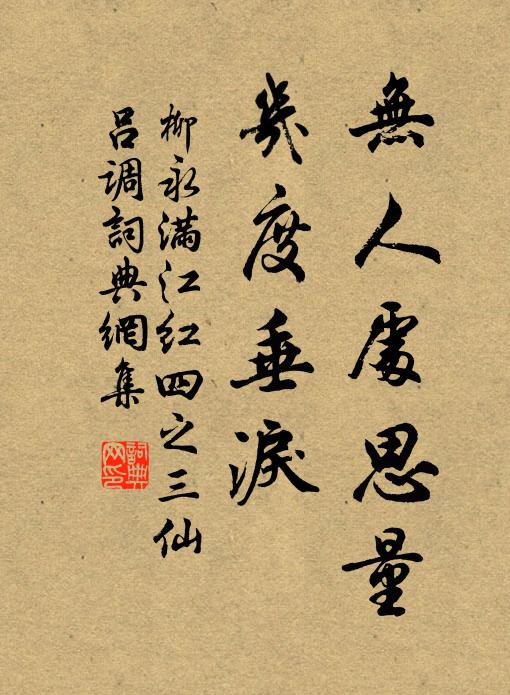 無人處思量
幾度垂淚
柳永滿江紅四之三仙
呂调詞典網集
詞典
网印